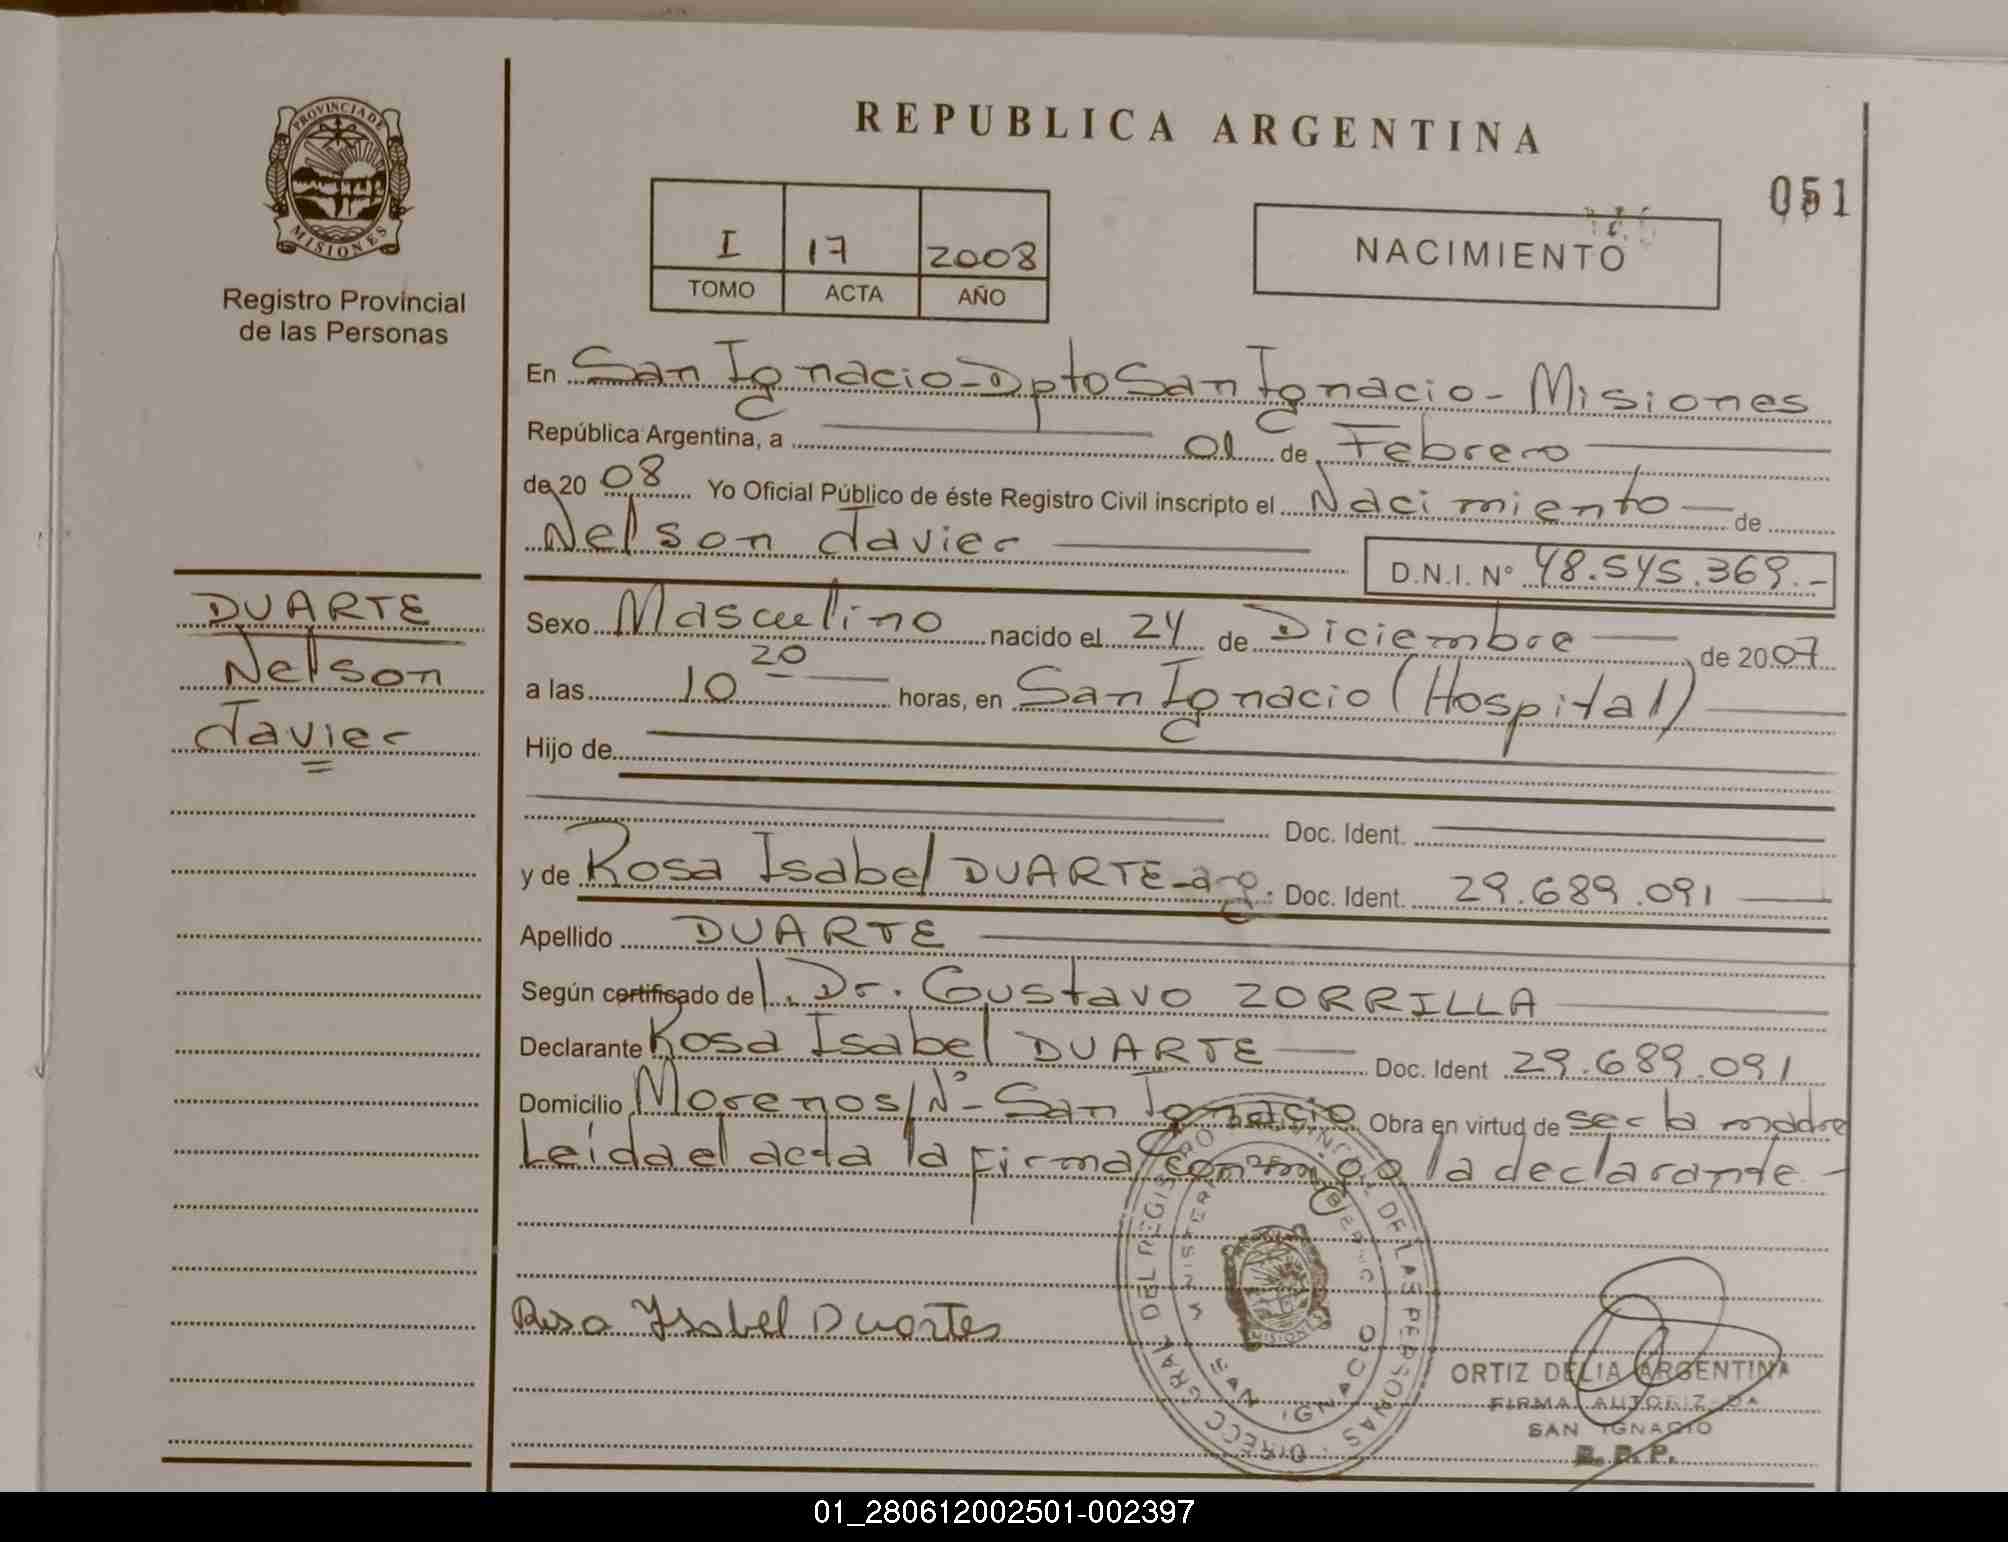 PROVINCIA DE
MISIONES
Registro Provincial
de las Personas
REPUBLICA ARGENTINA
051
I 17 2008
TOMO ACTA AÑO
NACIMIENTO
En San Ignacio - Dpto San Ignacio - Misiones
República Argentina, a 01 de Febrero
de 20 08 Yo Oficial Público de éste Registro Civil inscripto el Nacimiento de
Nelson Javier
D.N.I. Nº 48.545.369.-
DUARTE
Nelson
Javier
Sexo Masculino nacido el 24 de Diciembre de 2007
a las 10 20 horas, en San Ignacio (Hospital)
Hijo de
Doc. Ident.
y de Rosa Isabel DUARTE - arg. Doc. Ident. 29.689.091
Apellido DUARTE
Según certificado del. Dr. Gustavo ZORRILLA
Declarante Rosa Isabel DUARTE Doc. Ident 29.689.091
Domicilio Moreno s/Nº - San Ignacio Obra en virtud de ser la madre
Leída el acta la firma conmigo la declarante.-
Rosa Ysabel Duartes
DIRECC GRAL DEL REGISTRO PROVINCIAL DE LAS PERSONAS
SAN IGNACIO
MISIONES
ORTIZ DELIA ARGENTINA
FIRMA AUTORIZADA
SAN IGNACIO
R.P.P.
01_280612002501-002397